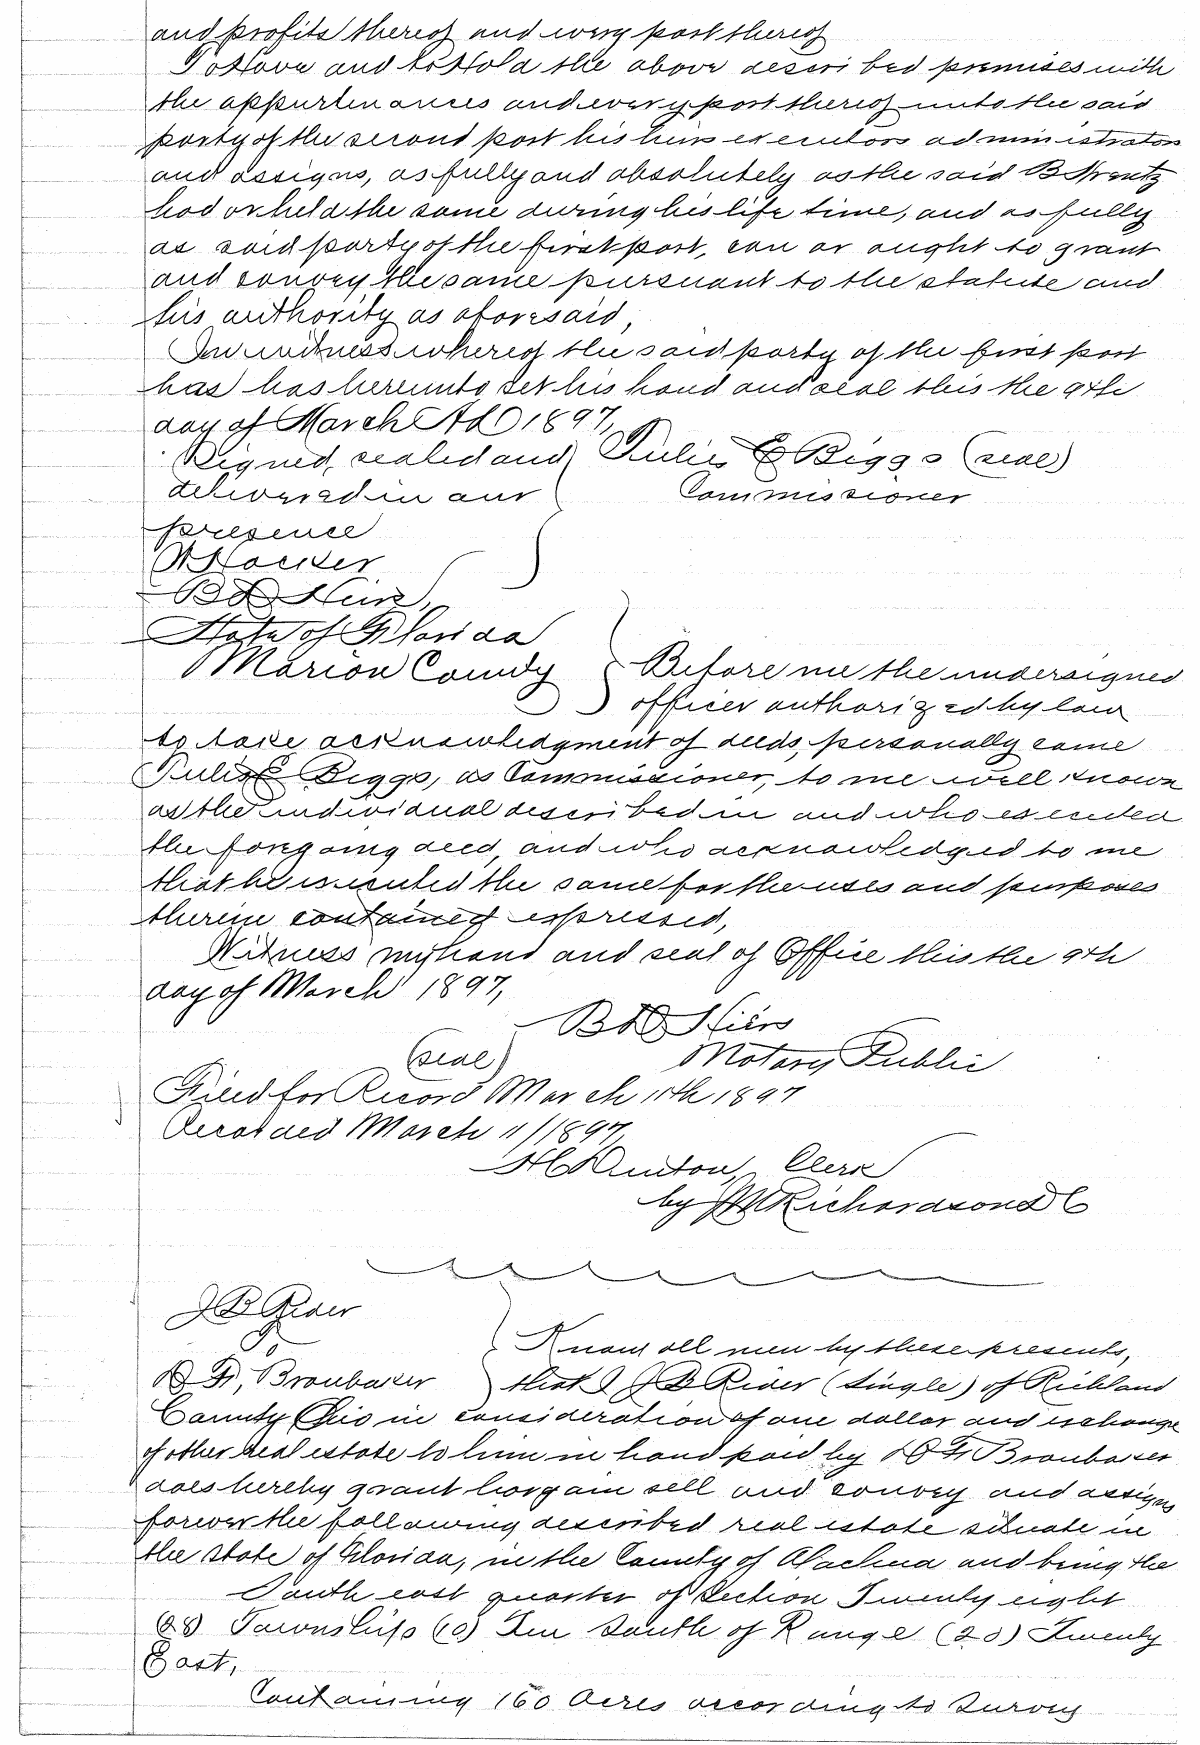 and profits thereof and every part thereof
To Have and to Hold the above described premises with
the appurtenances and every part thereof unto the said
party of the second part his heirs executors administrators
and assigns, as fully and absolutely as the said B
had or held the same during his life time, and as fully
as said party of the first part, can or ought to grant
and convey the same pursuant to the statute and
his authority as aforesaid,
In witness whereof the said party of the first part
has has hereunto set his hand and seal this the 9th
day of March AD 1897,
Signed, sealed and Julius E Biggs (seal)
delivered in our Commissioner
presence
W Hocker
B D Hiers,
State of Florida
Marion County Before me the undersigned
officer authorized by law
to take acknowledgment of deeds, personally came
Julius E Biggs, as Commissioner, to me well known
as the individual described in and who executed
the foregoing deed, and who acknowledged to me
that he executed the same for the uses and purposes
therein contained expressed,
Witness my hand and seal of Office this the 9th
day of March 1897,
B D Hiers
(seal) Notary Public
Filed for Record March 11th 1897
Recorded March 11/1897,
H C Denton, Clerk
by Richardson D C
J B Rider
to Know all men by these presents,
D F, Brubaker that I J B Rider (single) of Richland
County Ohio in consideration of one dollar and exchange
of other real estate to him in hand paid by D F Brubaker
does hereby grant bargain sell and convey and assigns
forever the following described real estate situate in
the state of Florida, in the County of Alachua and being the
South east quarter of Section Twenty eight
(28) Township (10) Ten South of Range (20) Twenty
East,
Containing 160 Acres according to Survey